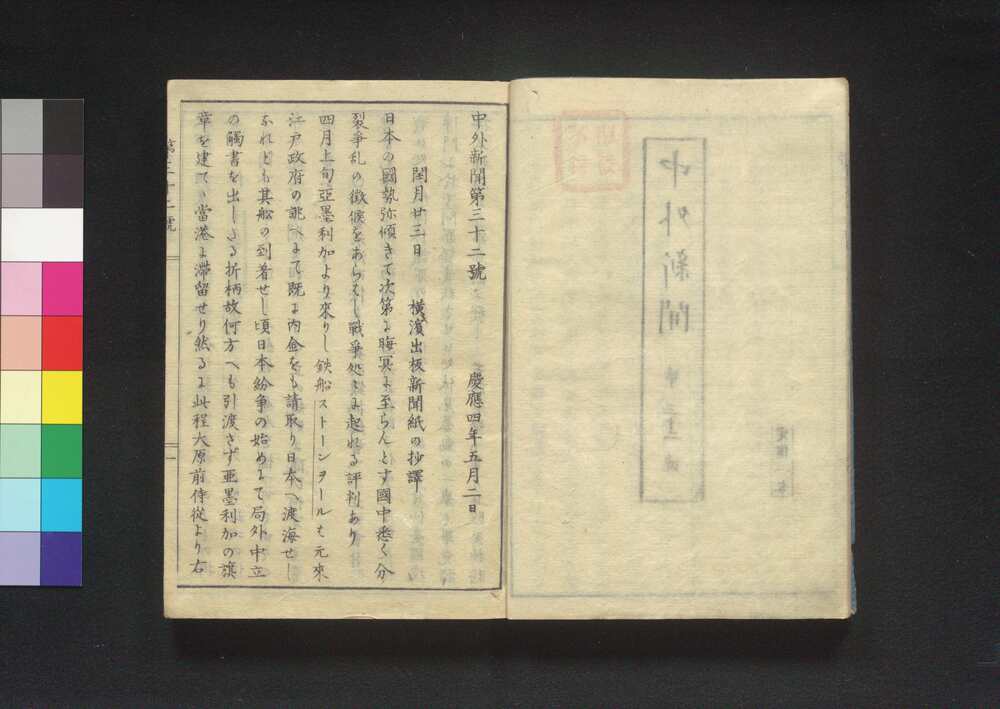 中外新聞第三十二號 慶應四年五月二日
閏月廿三日 横濱出板新聞紙の抄譯
日本の國勢弥傾きて次第に晦冥に至らんとす國中悉く分
裂爭乱の徴候をあらはし戰爭処々に起れる評判あり
四月上旬亞墨利加より來りし鉄船ストーンヲールも元來
江戸政府の誂へにて既に内金をも請取り日本へ渡海せし
なれども其船の到着せし頃日本紛爭の始めにて局外中立
の觸書を出したる折柄故何方へも引渡さず亜墨利加の旗
章を建てゝ當港に滯留せり然るに此程大原前侍從より右
第三十二號
一
中外新聞